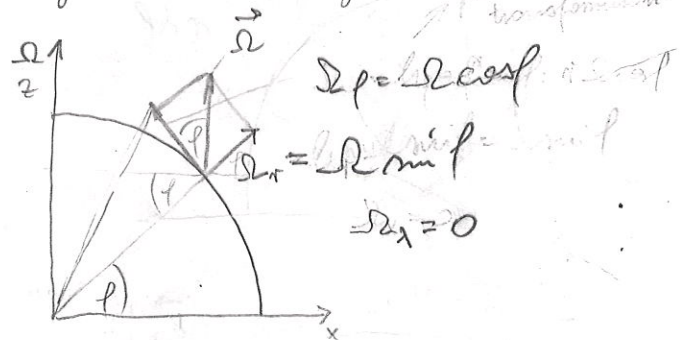 Ω
z
Ω⃗
Ωφ = Ω cosφ
φ
Ωr = Ω sinφ
φ
Ωλ = 0
φ
x